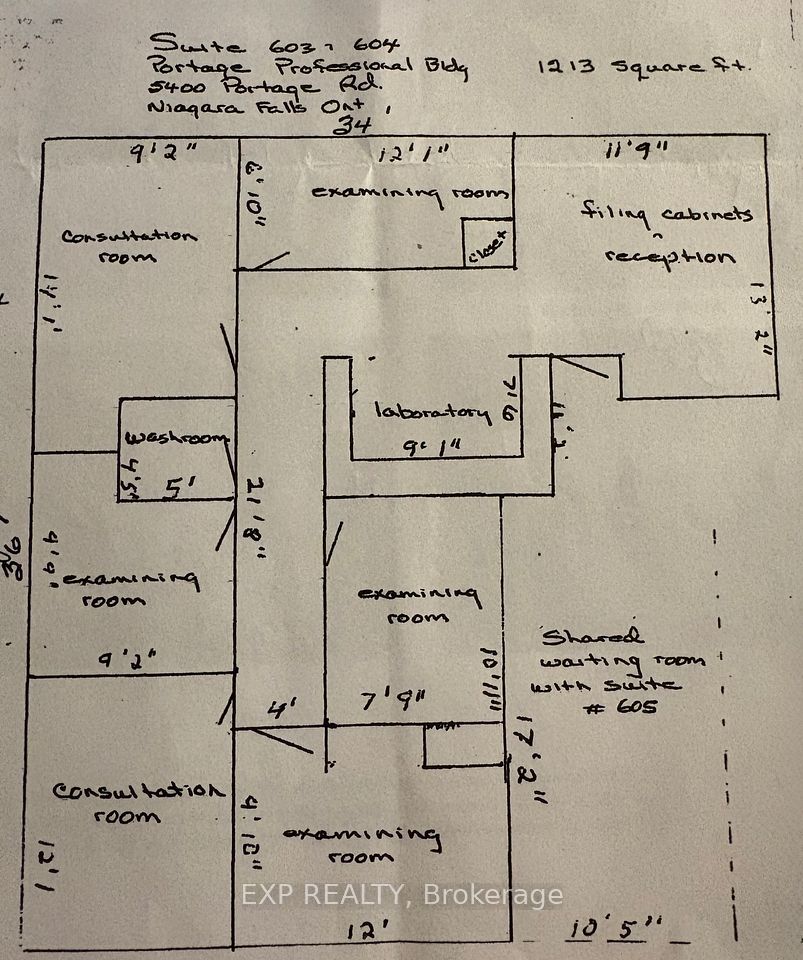 Suite 603 & 604
Portage Professional Bldg
1213 square ft.
5400 Portage Rd.
Niagara Falls Ont.
34
9'2"
12'1"
11'9"
6'10"
examining room
filing cabinets
&
reception
closet
consultation
room
13'2"
laboratory
7'6
9'1"
washroom
4'5"
5'
21'8"
36'
examining
room
9'2"
examining
room
10'11"
4'
7'9"
Shared
waiting room
with suite
# 605
17'2"
Consultation
room
12'1
examining
room
12'
10'5"
EXP REALTY, Brokerage